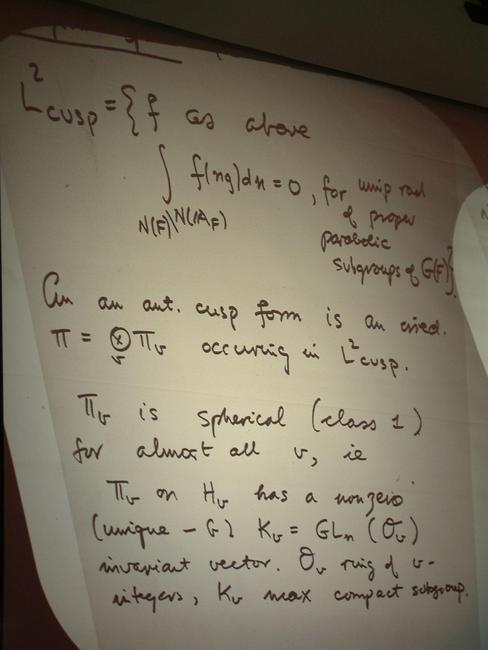 L²cusp = { f as above
∫ f(ng)dn = 0, for unip rad
N(F)\N(A_F)
of proper
parabolic
subgroups of G(F)}.
an aut. cusp form is an irred.
π = ⊗_v π_v occuring in L²cusp.
π_v is spherical (class 1)
for almost all v, ie
π_v on H_v has a nonzero
(unique - G) K_v = GL_n (O_v)
invariant vector. O_v ring of v-
integers, K_v max compact subgroup.